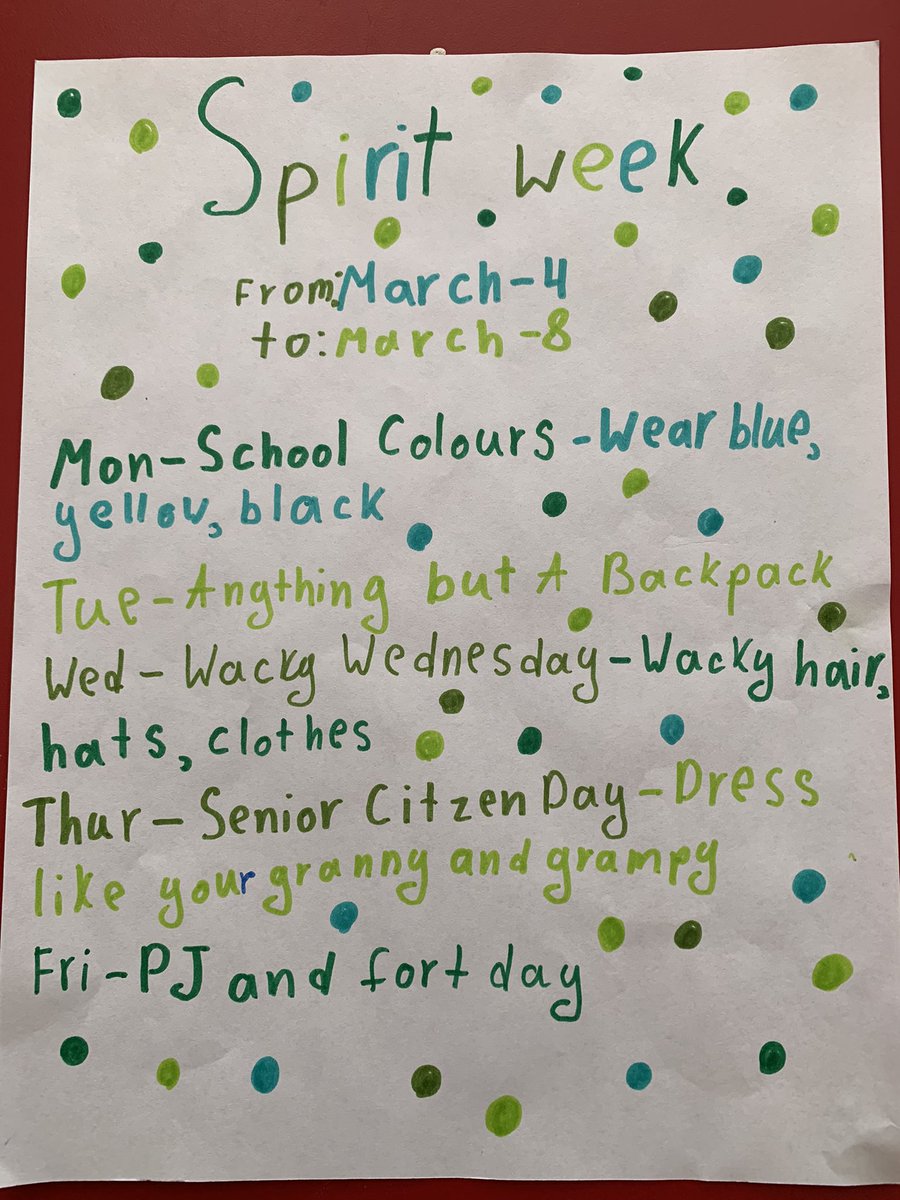 Spirit week
From: March-4
to: March-8
Mon-School Colours -Wear blue,
yellow, black
Tue-Angthing but A Backpack
Wed-Wacky Wednesday-Wacky hair,
hats, clothes
Thur-Senior Citzen Day-Dress
like your granny and grampy
Fri-PJ and fort day